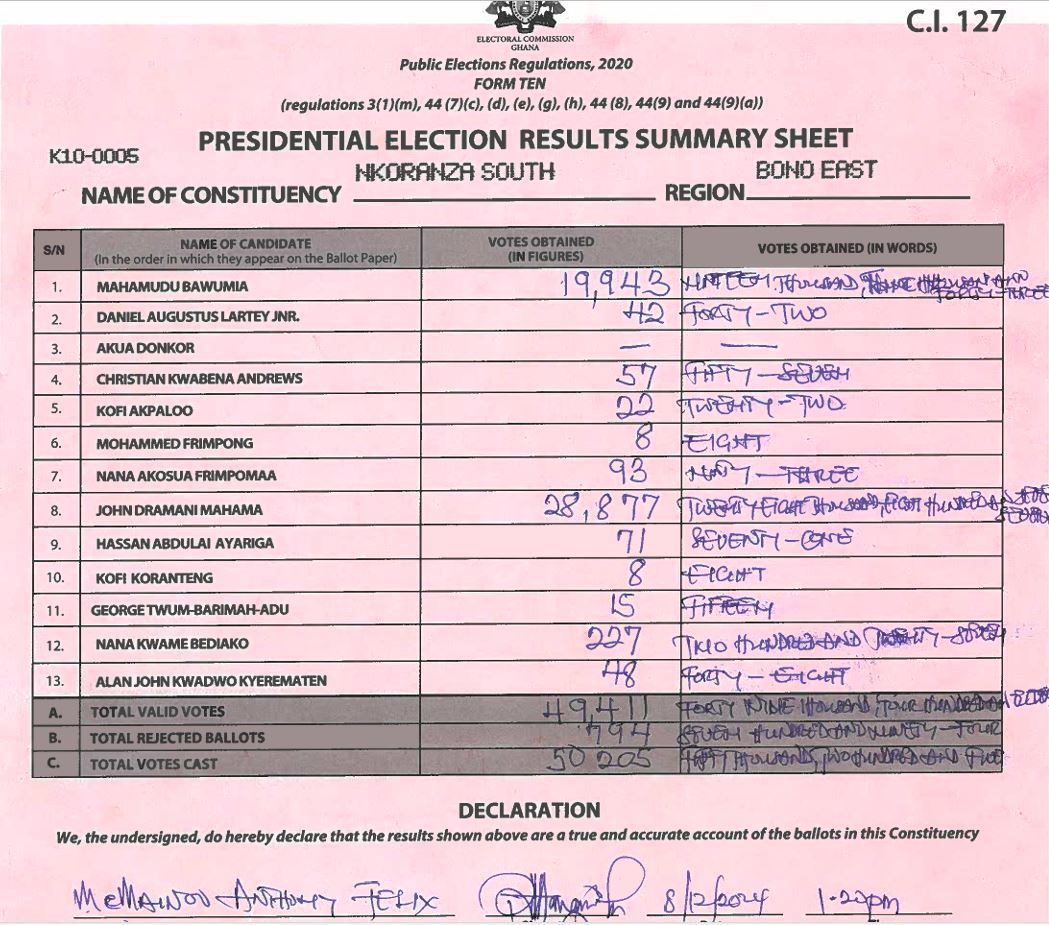 C.I. 127
ELECTORAL COMMISSION
GHANA
Public Elections Regulations, 2020
FORM TEN
(regulations 3(1)(m), 44 (7)(c), (d), (e), (g), (h), 44 (8), 44(9) and 44(9)(a))
PRESIDENTIAL ELECTION RESULTS SUMMARY SHEET
K10-0005
NAME OF CONSTITUENCY NKORANZA SOUTH REGION BONO EAST
S/N NAME OF CANDIDATE (In the order in which they appear on the Ballot Paper) VOTES OBTAINED (IN FIGURES) VOTES OBTAINED (IN WORDS)
1. MAHAMUDU BAWUMIA 19,943 THOUSAND, FORTY-THREE
2. DANIEL AUGUSTUS LARTEY JNR. 42 FORTY-TWO
3. AKUA DONKOR — —
4. CHRISTIAN KWABENA ANDREWS 57 FIFTY-SEVEN
5. KOFI AKPALOO 22 TWENTY-TWO
6. MOHAMMED FRIMPONG 8 EIGHT
7. NANA AKOSUA FRIMPOMAA 93 THREE
8. JOHN DRAMANI MAHAMA 28,877 TWENTY EIGHT THOUSAND, EIGHT HUNDRED
9. HASSAN ABDULAI AYARIGA 71 SEVENTY-ONE
10. KOFI KORANTENG 8 EIGHT
11. GEORGE TWUM-BARIMAH-ADU 15 FIFTEEN
12. NANA KWAME BEDIAKO 227 TWO HUNDRED AND TWENTY-SEVEN
13. ALAN JOHN KWADWO KYEREMATEN 48 FORTY-EIGHT
A. TOTAL VALID VOTES 49,411 FORTY NINE THOUSAND, FOUR HUNDRED AND
B. TOTAL REJECTED BALLOTS 794 SEVEN HUNDRED AND NINETY-FOUR
C. TOTAL VOTES CAST 50 205 FIFTY THOUSAND, TWO HUNDRED AND FIVE
DECLARATION
We, the undersigned, do hereby declare that the results shown above are a true and accurate account of the ballots in this Constituency
ANTHONY FELIX 8/12/2024 1.20pm